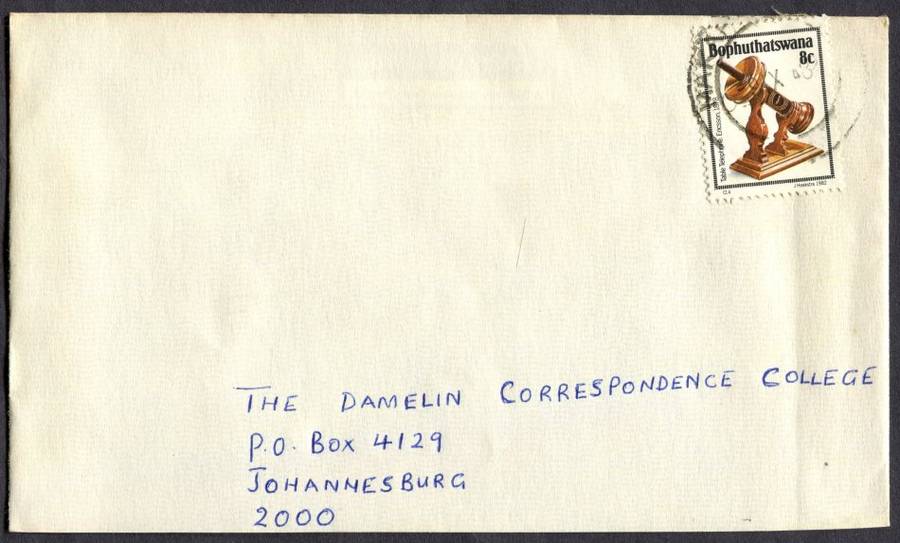 Bophuthatswana
8c
Table Telephone Ericsson
THE DAMELIN CORRESPONDENCE COLLEGE
P.O. BOX 4129
JOHANNESBURG
2000